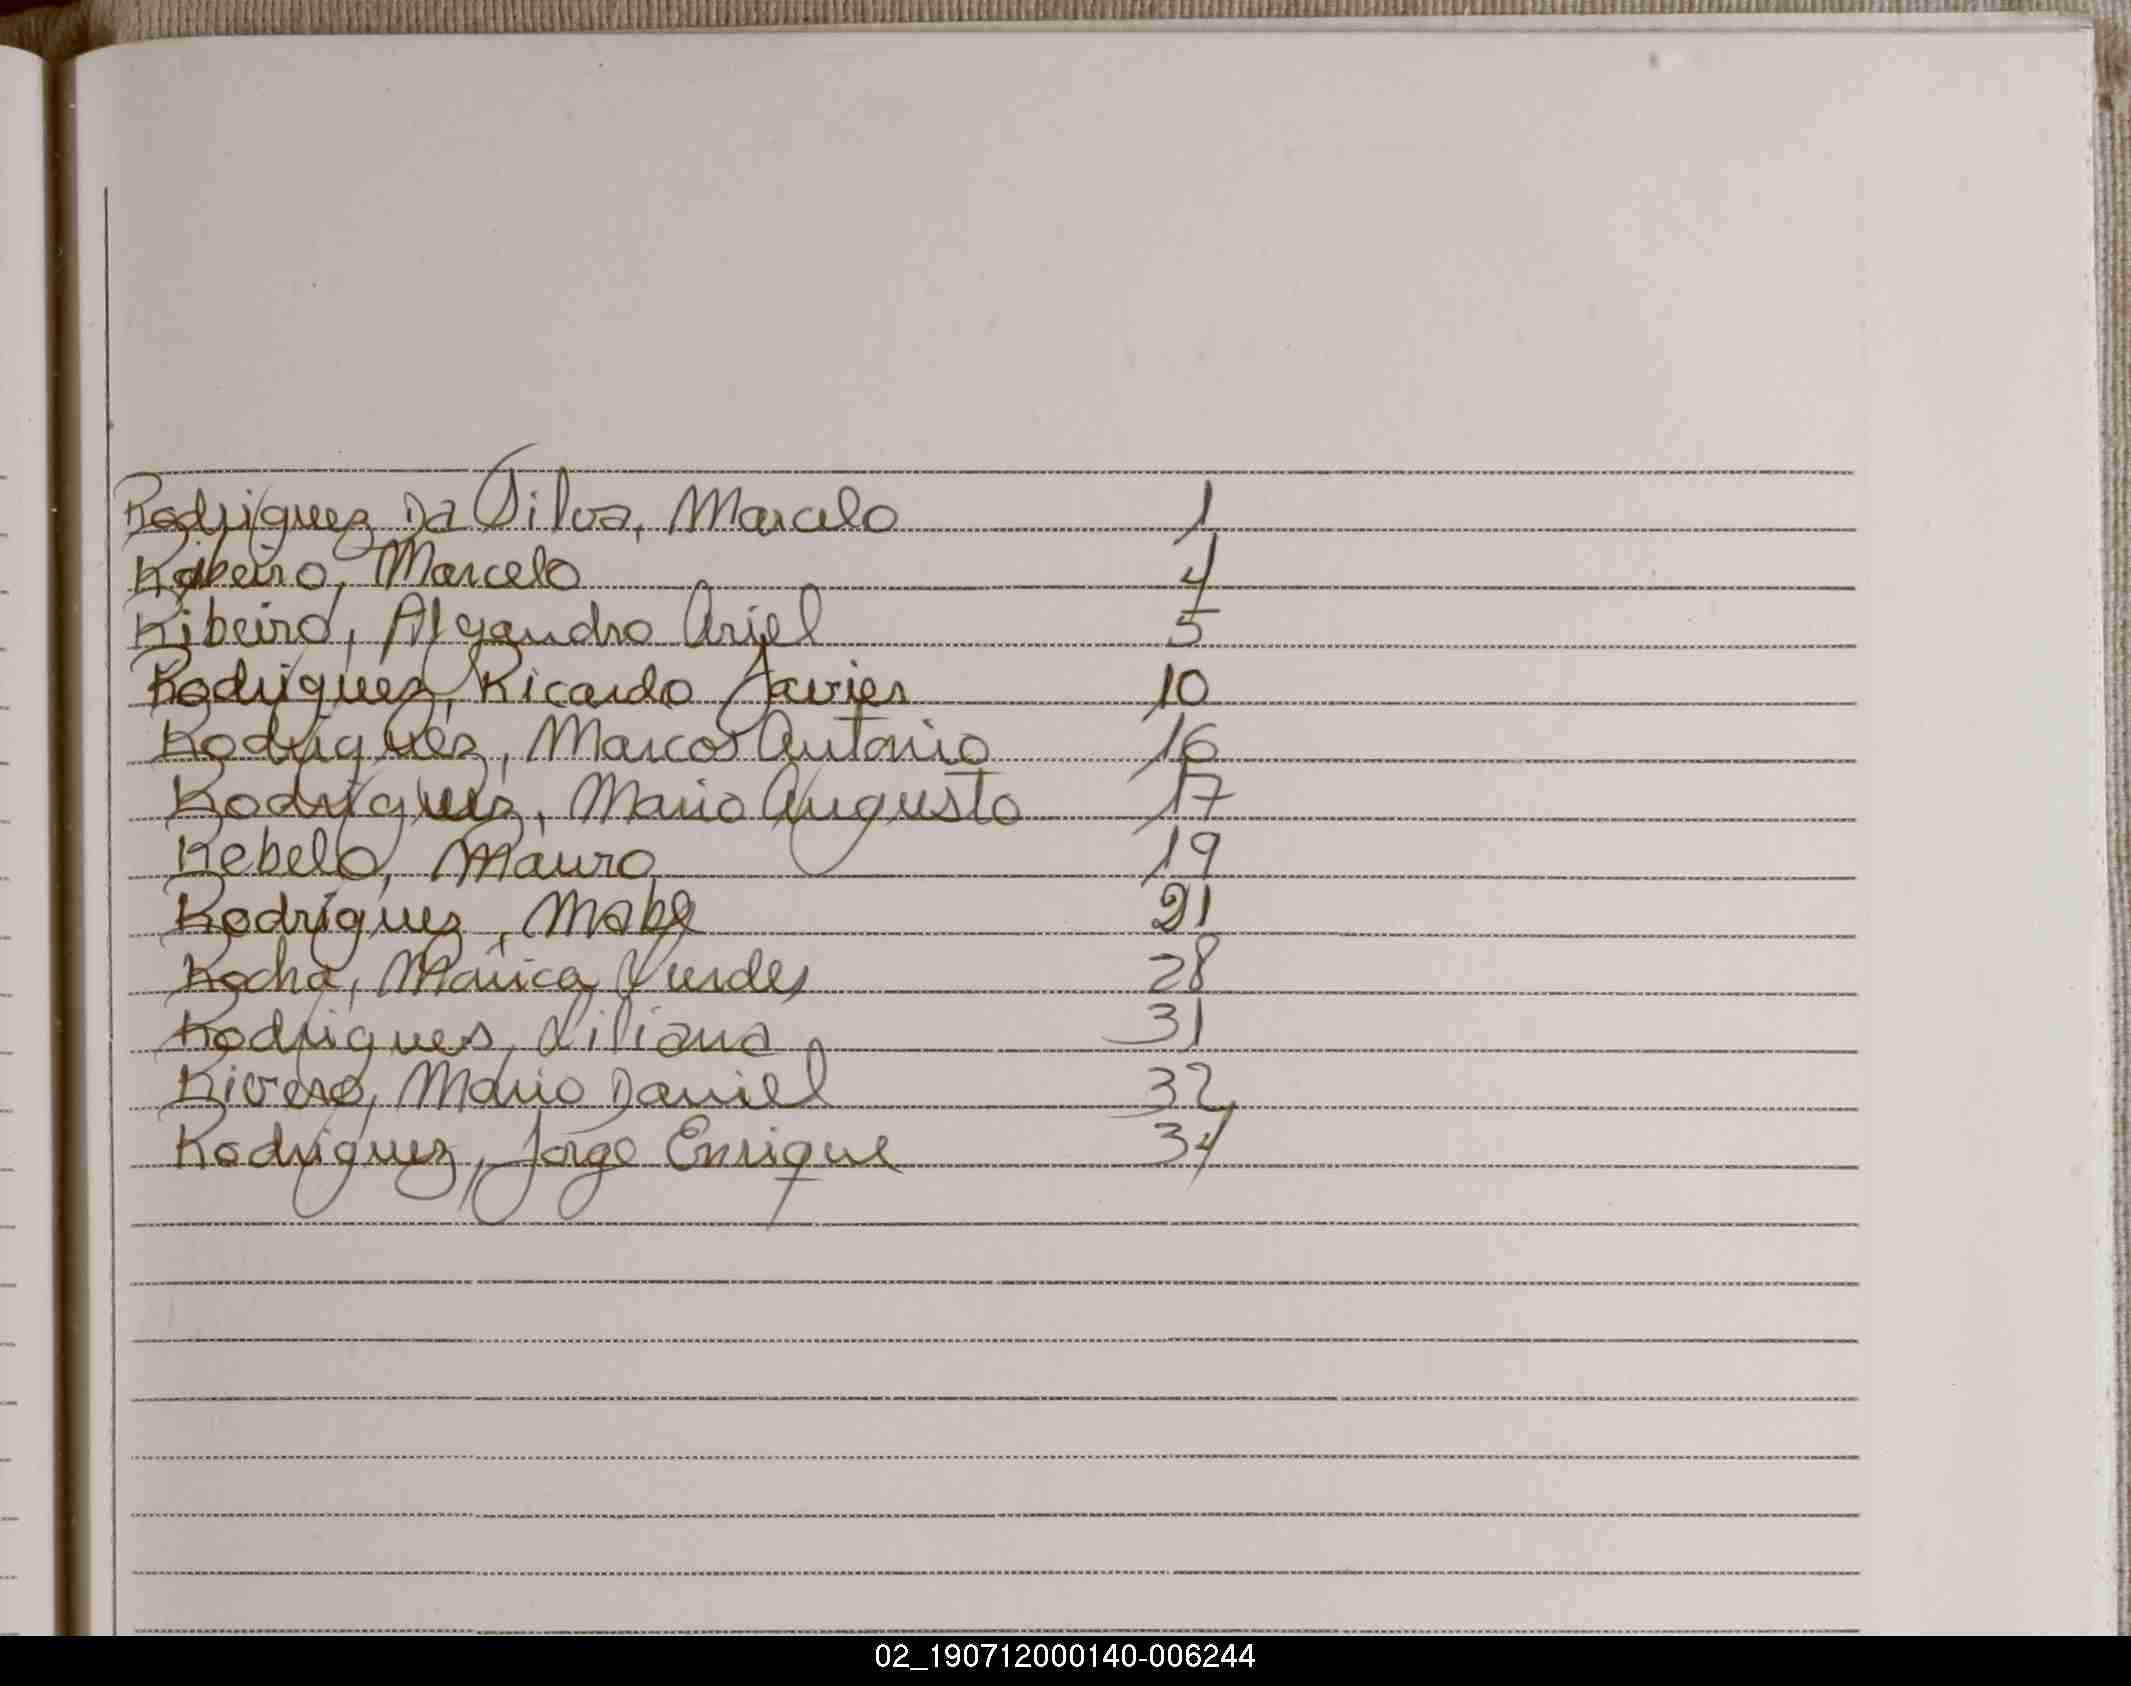 Rodriguez Da Silva, Marcelo 1
Ribeiro, Marcelo 4
Ribeiro, Alejandro Ariel 5
Rodriguez, Ricardo Javier 10
Rodriguez, Marcos Antonio 16
Rodriguez, Mario Augusto 17
Rebelo, Mauro 19
Rodriguez, Mabel 21
Rocha, 28
Rodrigues, Liliana 31
Rivero, Mario Daniel 32
Rodriguez, Jorge Enrique 34
02_190712000140-006244